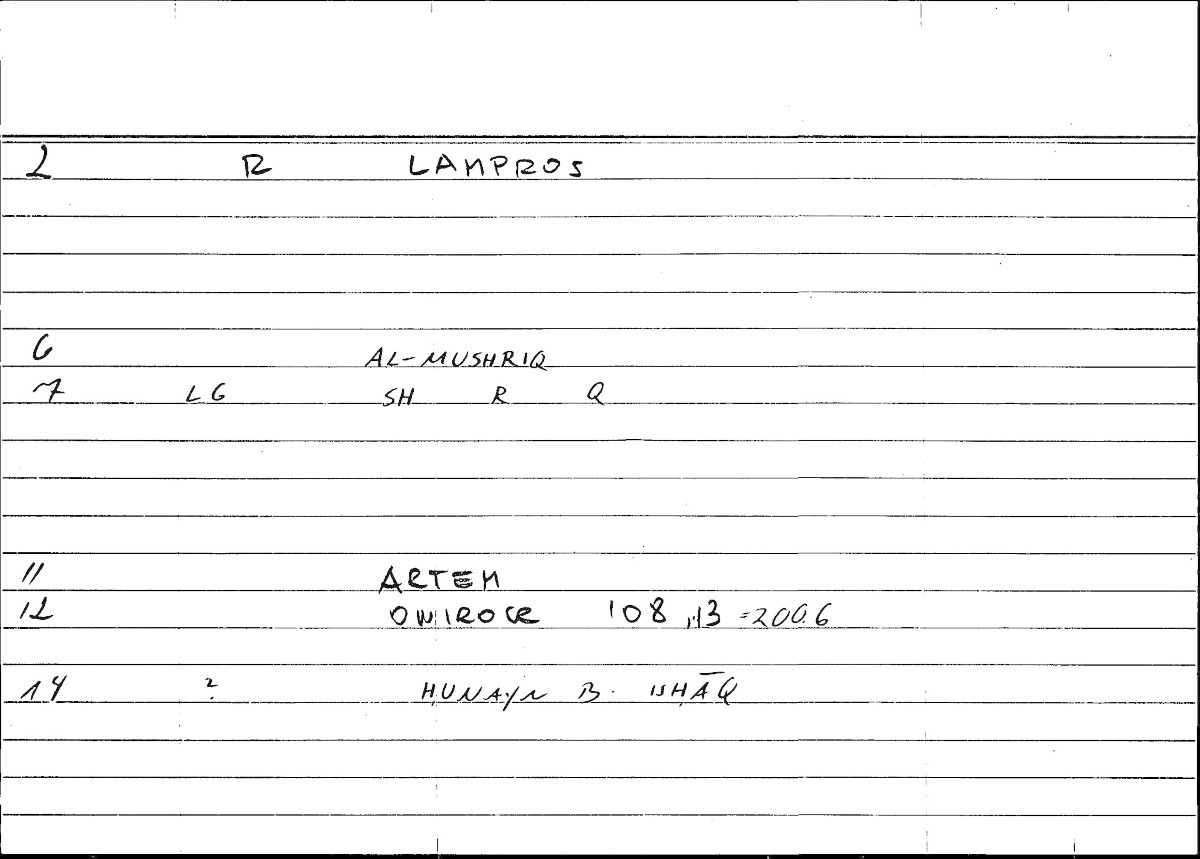 2 R LAMPROS
6 AL-MUSHRIQ
7 LG SH R Q
11 ARTEM
12 108,13 =200.6
14 ? ḤUNAYN B. ISḤĀQ